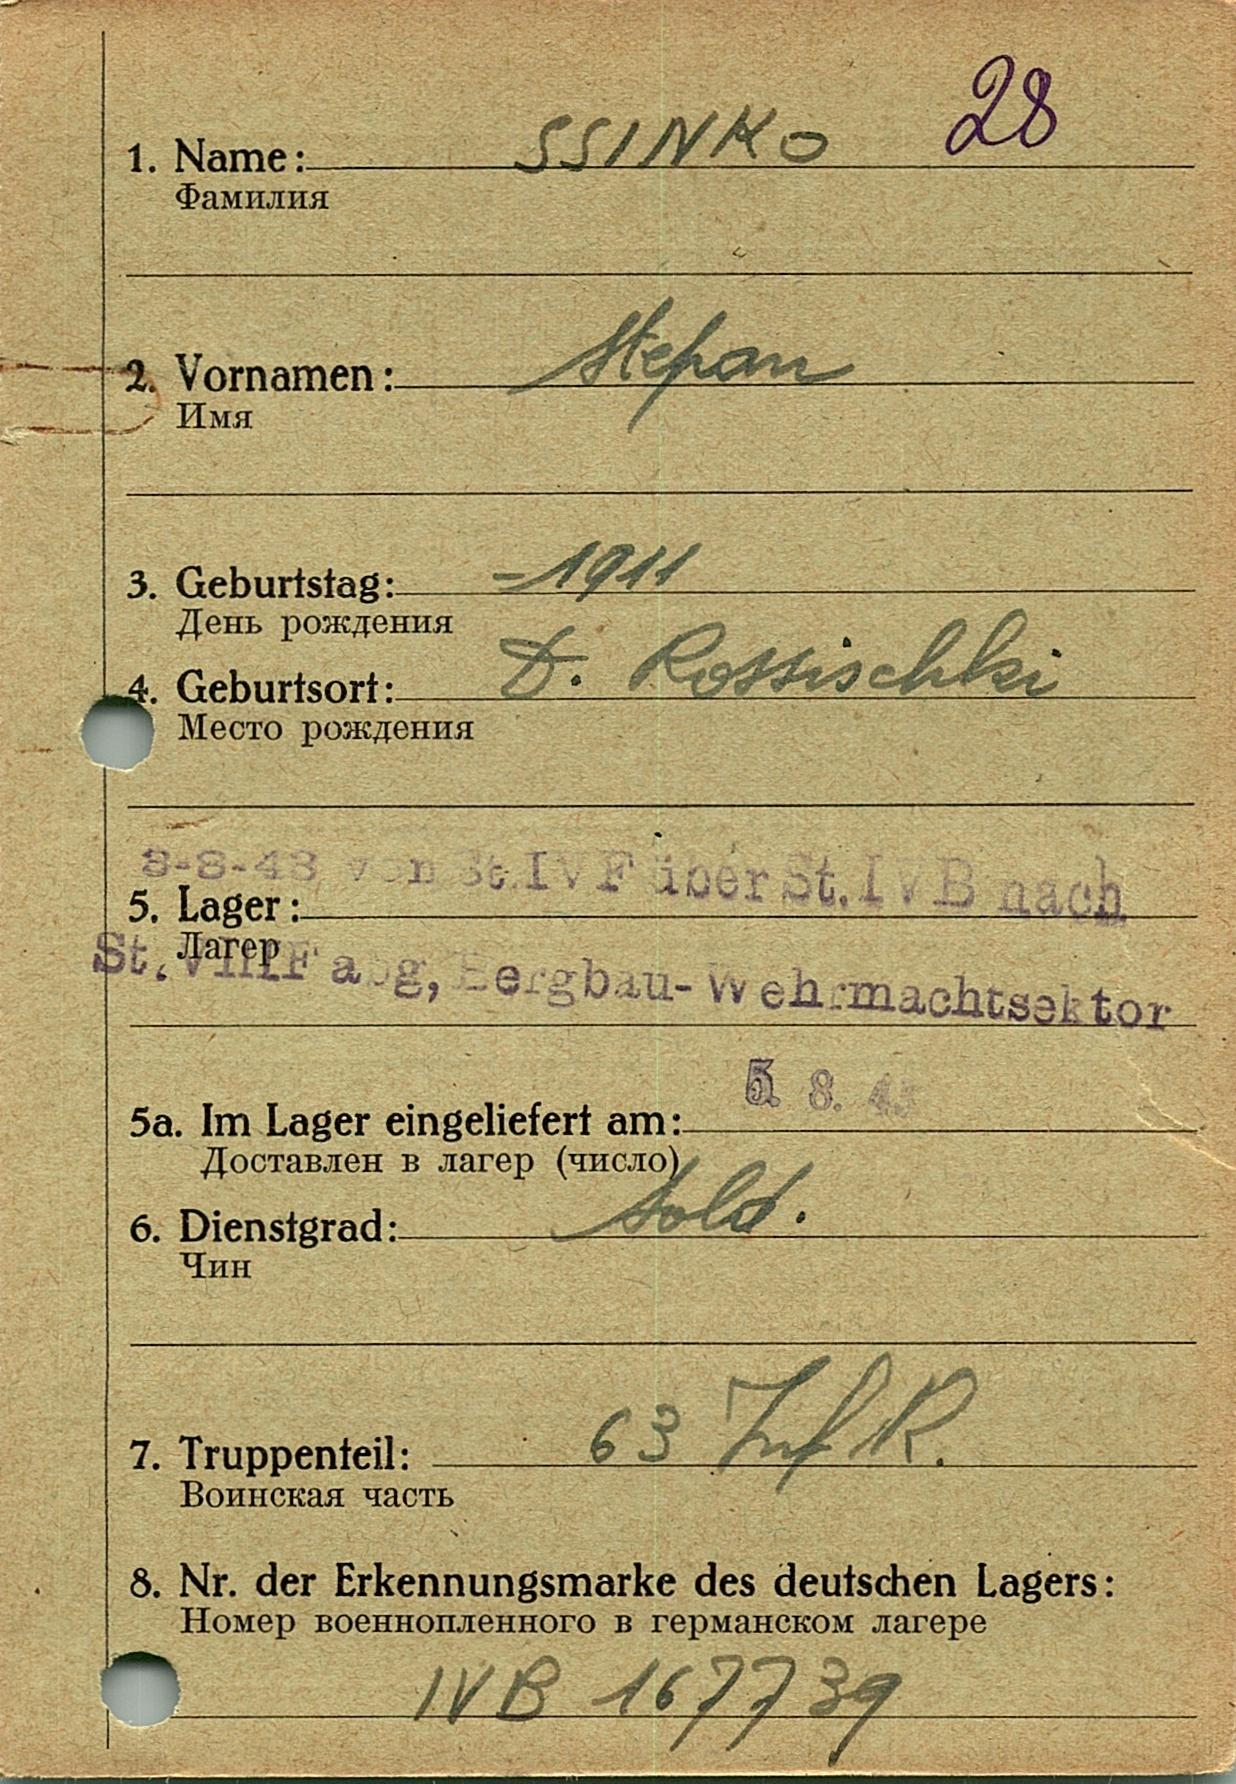 28
1. Name: SSINKO
Фамилия
2. Vornamen: Stepan
Имя
3. Geburtstag: -1911
День рождения
4. Geburtsort: D. Rossischki
Место рождения
3-8-43 von St.IVF über St.IVB nach
5. Lager:
Лагер
St.VIIIF abg, Bergbau-Wehrmachtsektor
5. 8. 43
5a. Im Lager eingeliefert am:
Доставлен в лагер (число)
6. Dienstgrad: Sold.
Чин
7. Truppenteil: 63 Inf R.
Воинская часть
8. Nr. der Erkennungsmarke des deutschen Lagers:
Номер военнопленного в германском лагере
IVB 167739